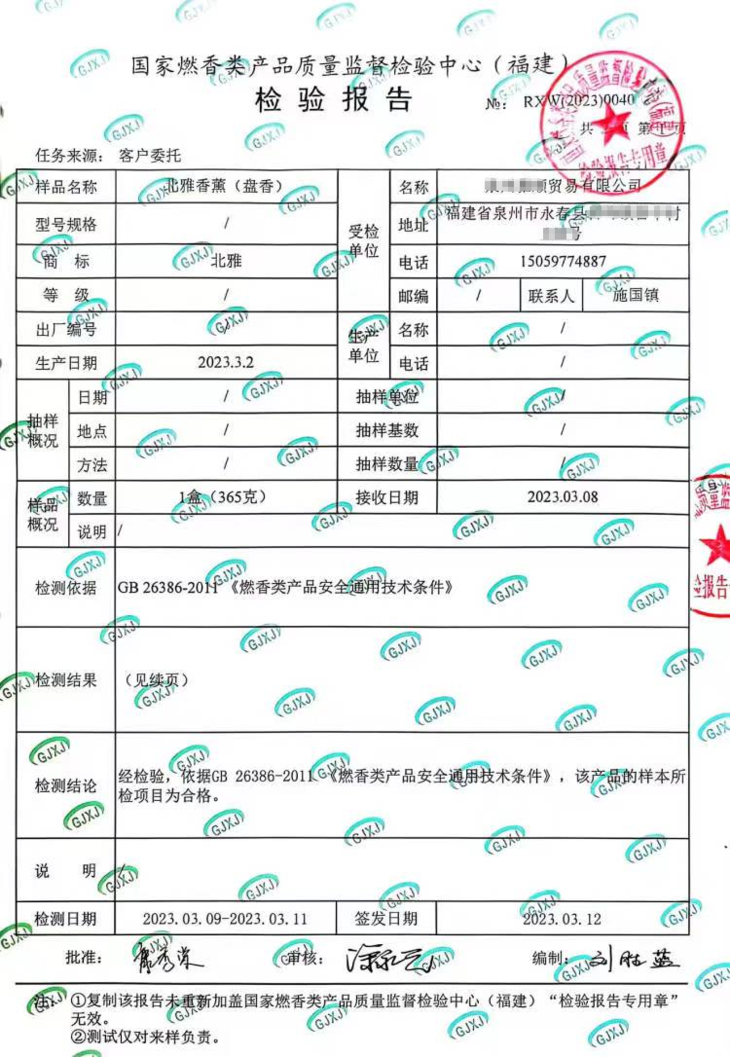 国家燃香类产品质量监督检验中心（福建）
检验报告
№: RXW(2023)0040
共 页 第 页
任务来源: 客户委托
样品名称 北雅香薰（盘香） 受检单位 名称 贸易有限公司
型号规格 / 地址 福建省泉州市永春县 村 号
商 标 北雅 电话 15059774887
等 级 / 邮编 / 联系人 施国镇
出厂编号 / 生产单位 名称 /
生产日期 2023.3.2 电话 /
抽样概况 日期 / 抽样单位 /
地点 / 抽样基数 /
方法 / 抽样数量 /
样品概况 数量 1盒（365克） 接收日期 2023.03.08
说明 /
检测依据 GB 26386-2011 《燃香类产品安全通用技术条件》
检测结果 （见续页）
检测结论 经检验，依据GB 26386-2011 《燃香类产品安全通用技术条件》，该产品的样本所
检项目为合格。
说 明 /
检测日期 2023.03.09-2023.03.11 签发日期 2023.03.12
批准: 审核: 编制:
注: ①复制该报告未重新加盖国家燃香类产品质量监督检验中心（福建）“检验报告专用章”
无效。
②测试仅对来样负责。
检验报告专用章
GJXJ